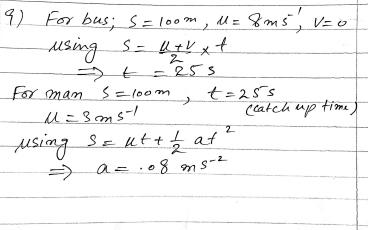 9) For bus; S = 100m, u = 8ms⁻¹, V = 0
using S = (u+v)/2 × t
⇒ t = 25 s
For man S = 100m, t = 25 s
(catch up time)
u = 3ms⁻¹
using S = ut + 1/2 at²
⇒ a = .08 ms⁻²